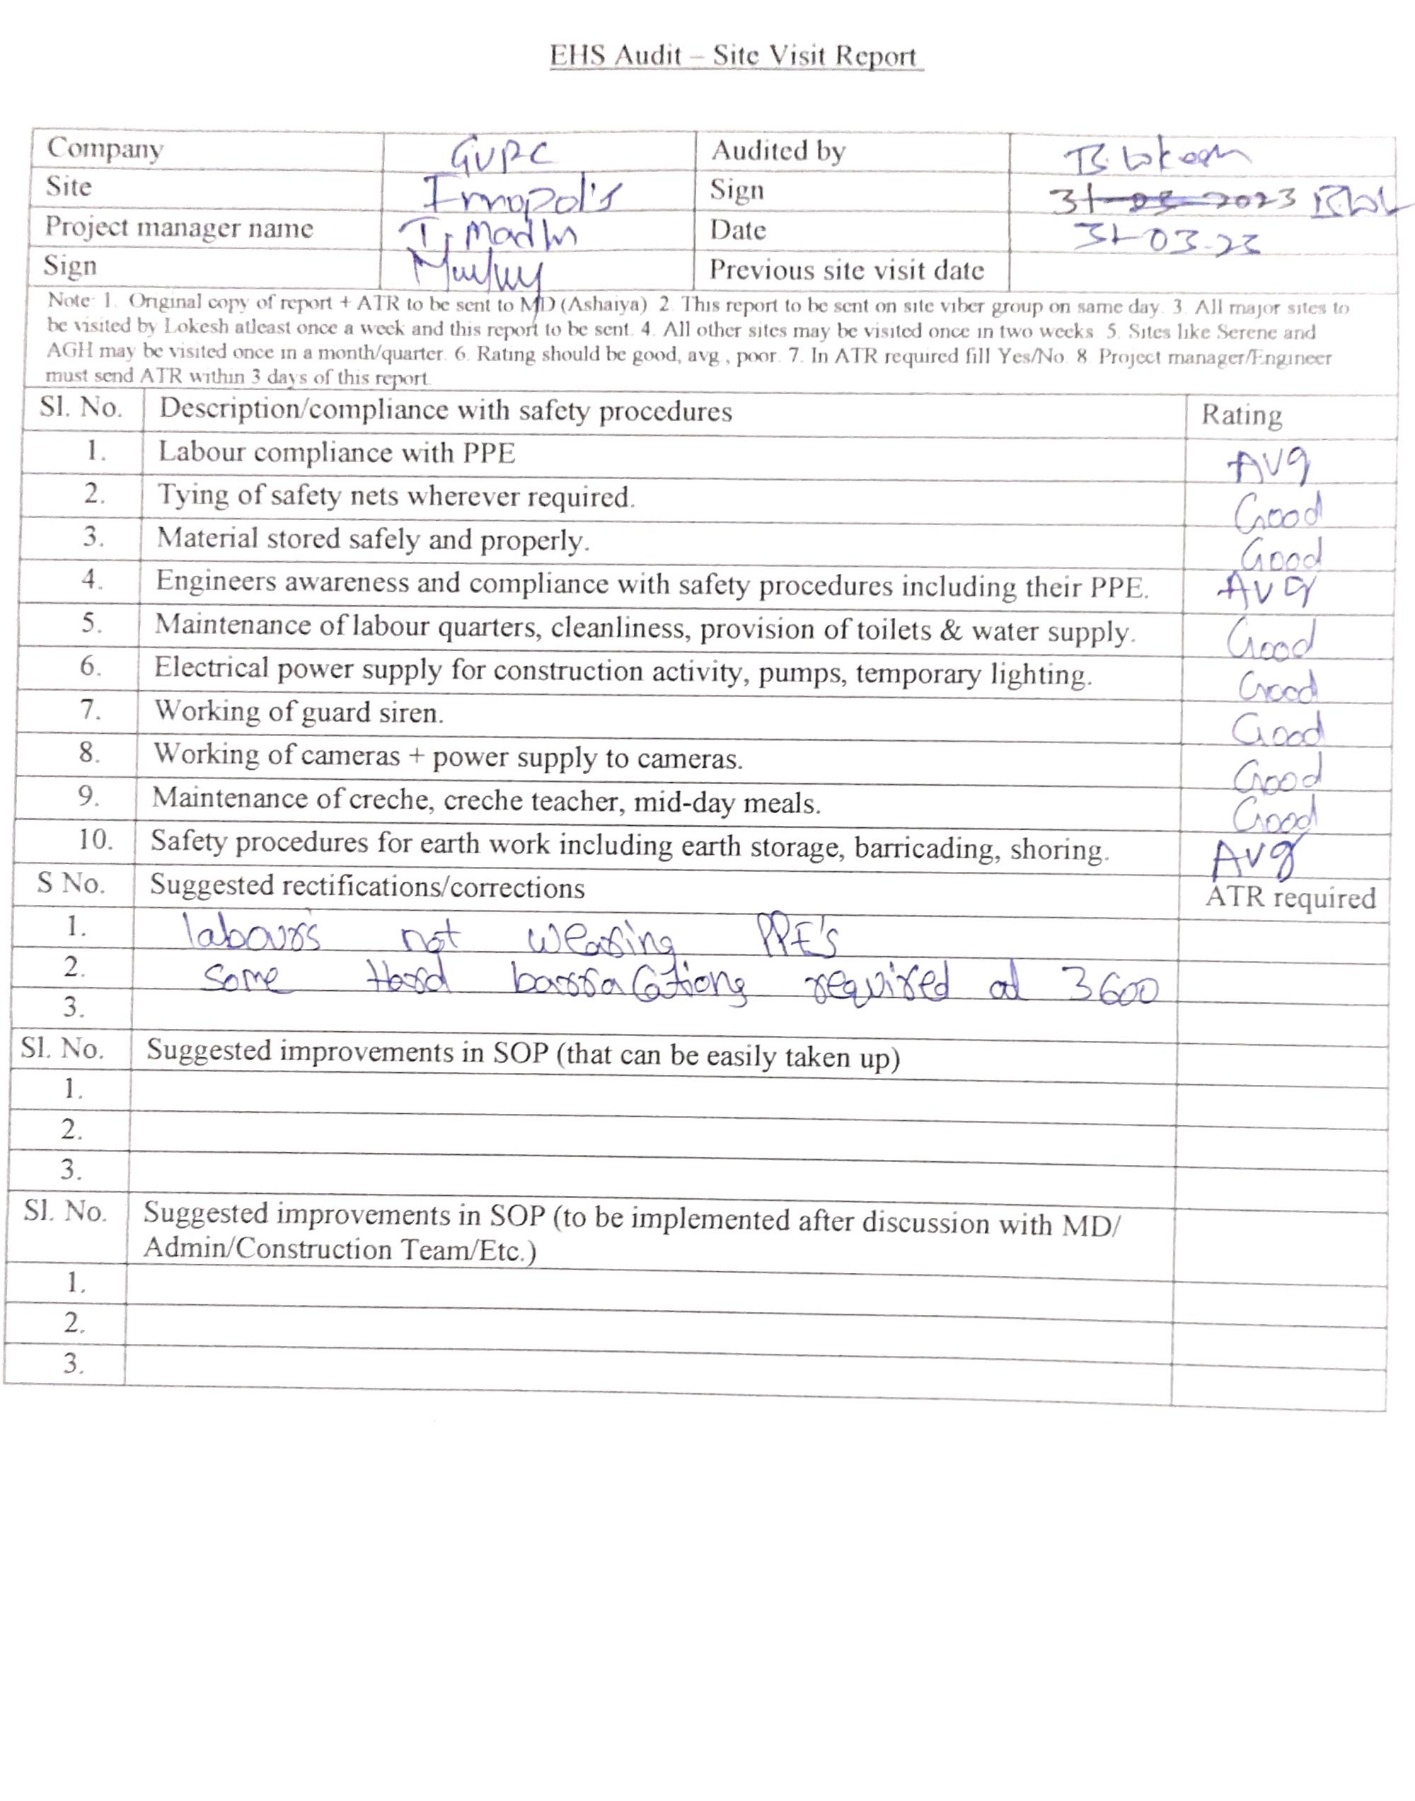 EHS Audit – Site Visit Report
Company GVRC Audited by B. Lokesh
Site Innopol's Sign 31-03-2023
Project manager name T. Madhu Date 31-03-23
Sign Previous site visit date
Note: 1. Original copy of report + ATR to be sent to MD (Ashaiya) 2. This report to be sent on site viber group on same day. 3. All major sites to
be visited by Lokesh atleast once a week and this report to be sent. 4. All other sites may be visited once in two weeks 5. Sites like Serene and
AGH may be visited once in a month/quarter. 6. Rating should be good, avg., poor. 7. In ATR required fill Yes/No. 8. Project manager/Engineer
must send ATR within 3 days of this report.
Sl. No. Description/compliance with safety procedures Rating
1. Labour compliance with PPE Avg
2. Tying of safety nets wherever required. Good
3. Material stored safely and properly. Good
4. Engineers awareness and compliance with safety procedures including their PPE. Avg
5. Maintenance of labour quarters, cleanliness, provision of toilets & water supply. Good
6. Electrical power supply for construction activity, pumps, temporary lighting. Good
7. Working of guard siren. Good
8. Working of cameras + power supply to cameras. Good
9. Maintenance of creche, creche teacher, mid-day meals. Good
10. Safety procedures for earth work including earth storage, barricading, shoring. Avg
S No. Suggested rectifications/corrections ATR required
1. labours not wearing PPE's
2. Some Hard required at 3600
3.
Sl. No. Suggested improvements in SOP (that can be easily taken up)
1.
2.
3.
Sl. No. Suggested improvements in SOP (to be implemented after discussion with MD/
Admin/Construction Team/Etc.)
1.
2.
3.